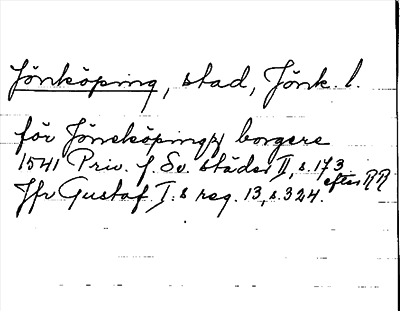 Jönköping, stad, Jönk. l.
för Jönsköpungx borgere
1541 Priv. f. Sv. städer II, s. 173 efter RR
Jfr Gustaf I:s reg. 13, s. 324.